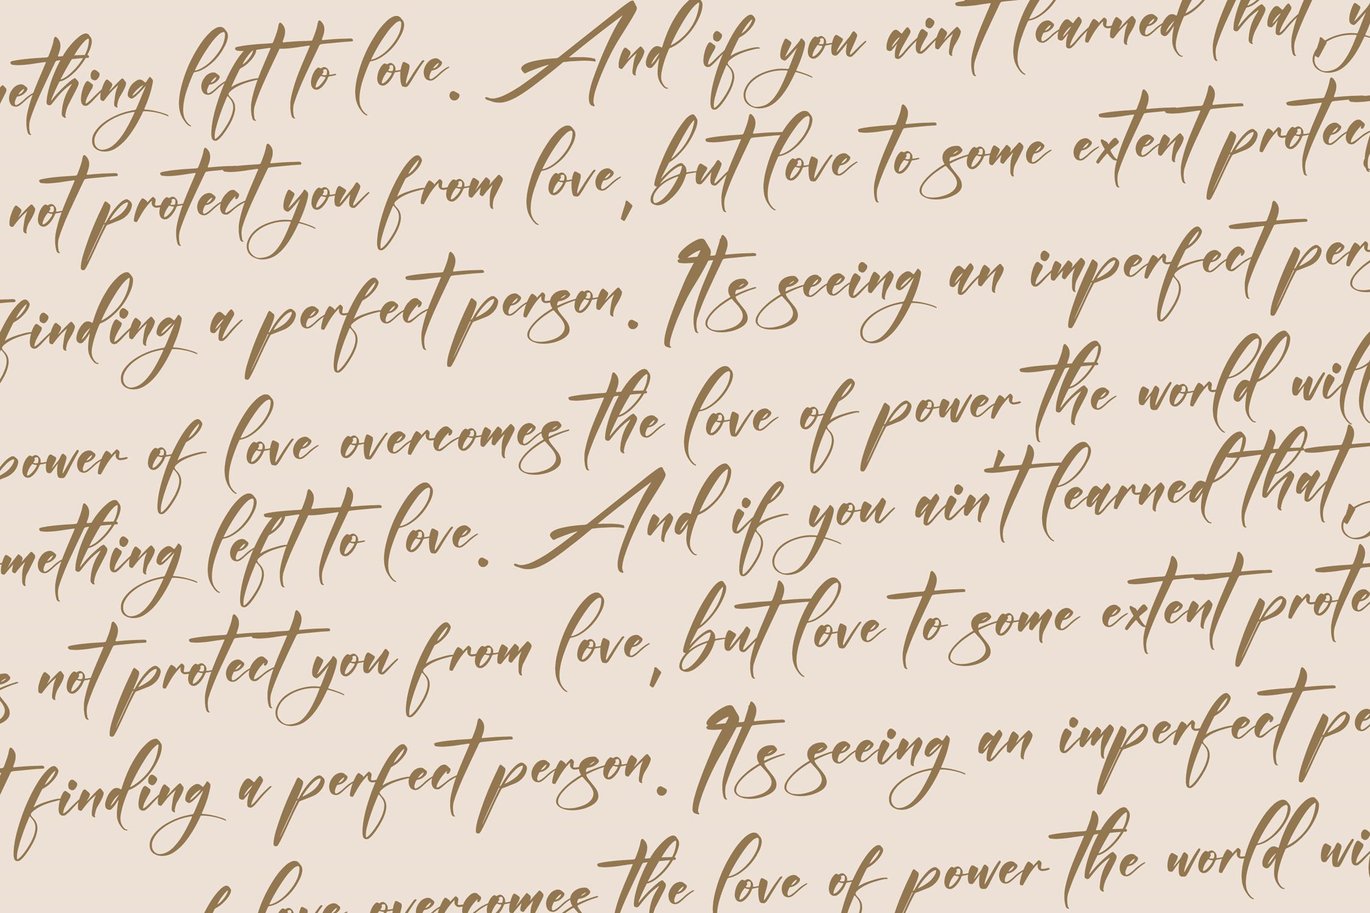 mething left to love. And if you ain't learned that y
not protect you from love, but love to some extent protec
finding a perfect person. Its seeing an imperfect pers
power of love overcomes the love of power the world will
mething left to love. And if you ain't learned that
s not protect you from love, but love to some extent prote
t finding a perfect person. Its seeing an imperfect pe
f love overcomes the love of power the world wi